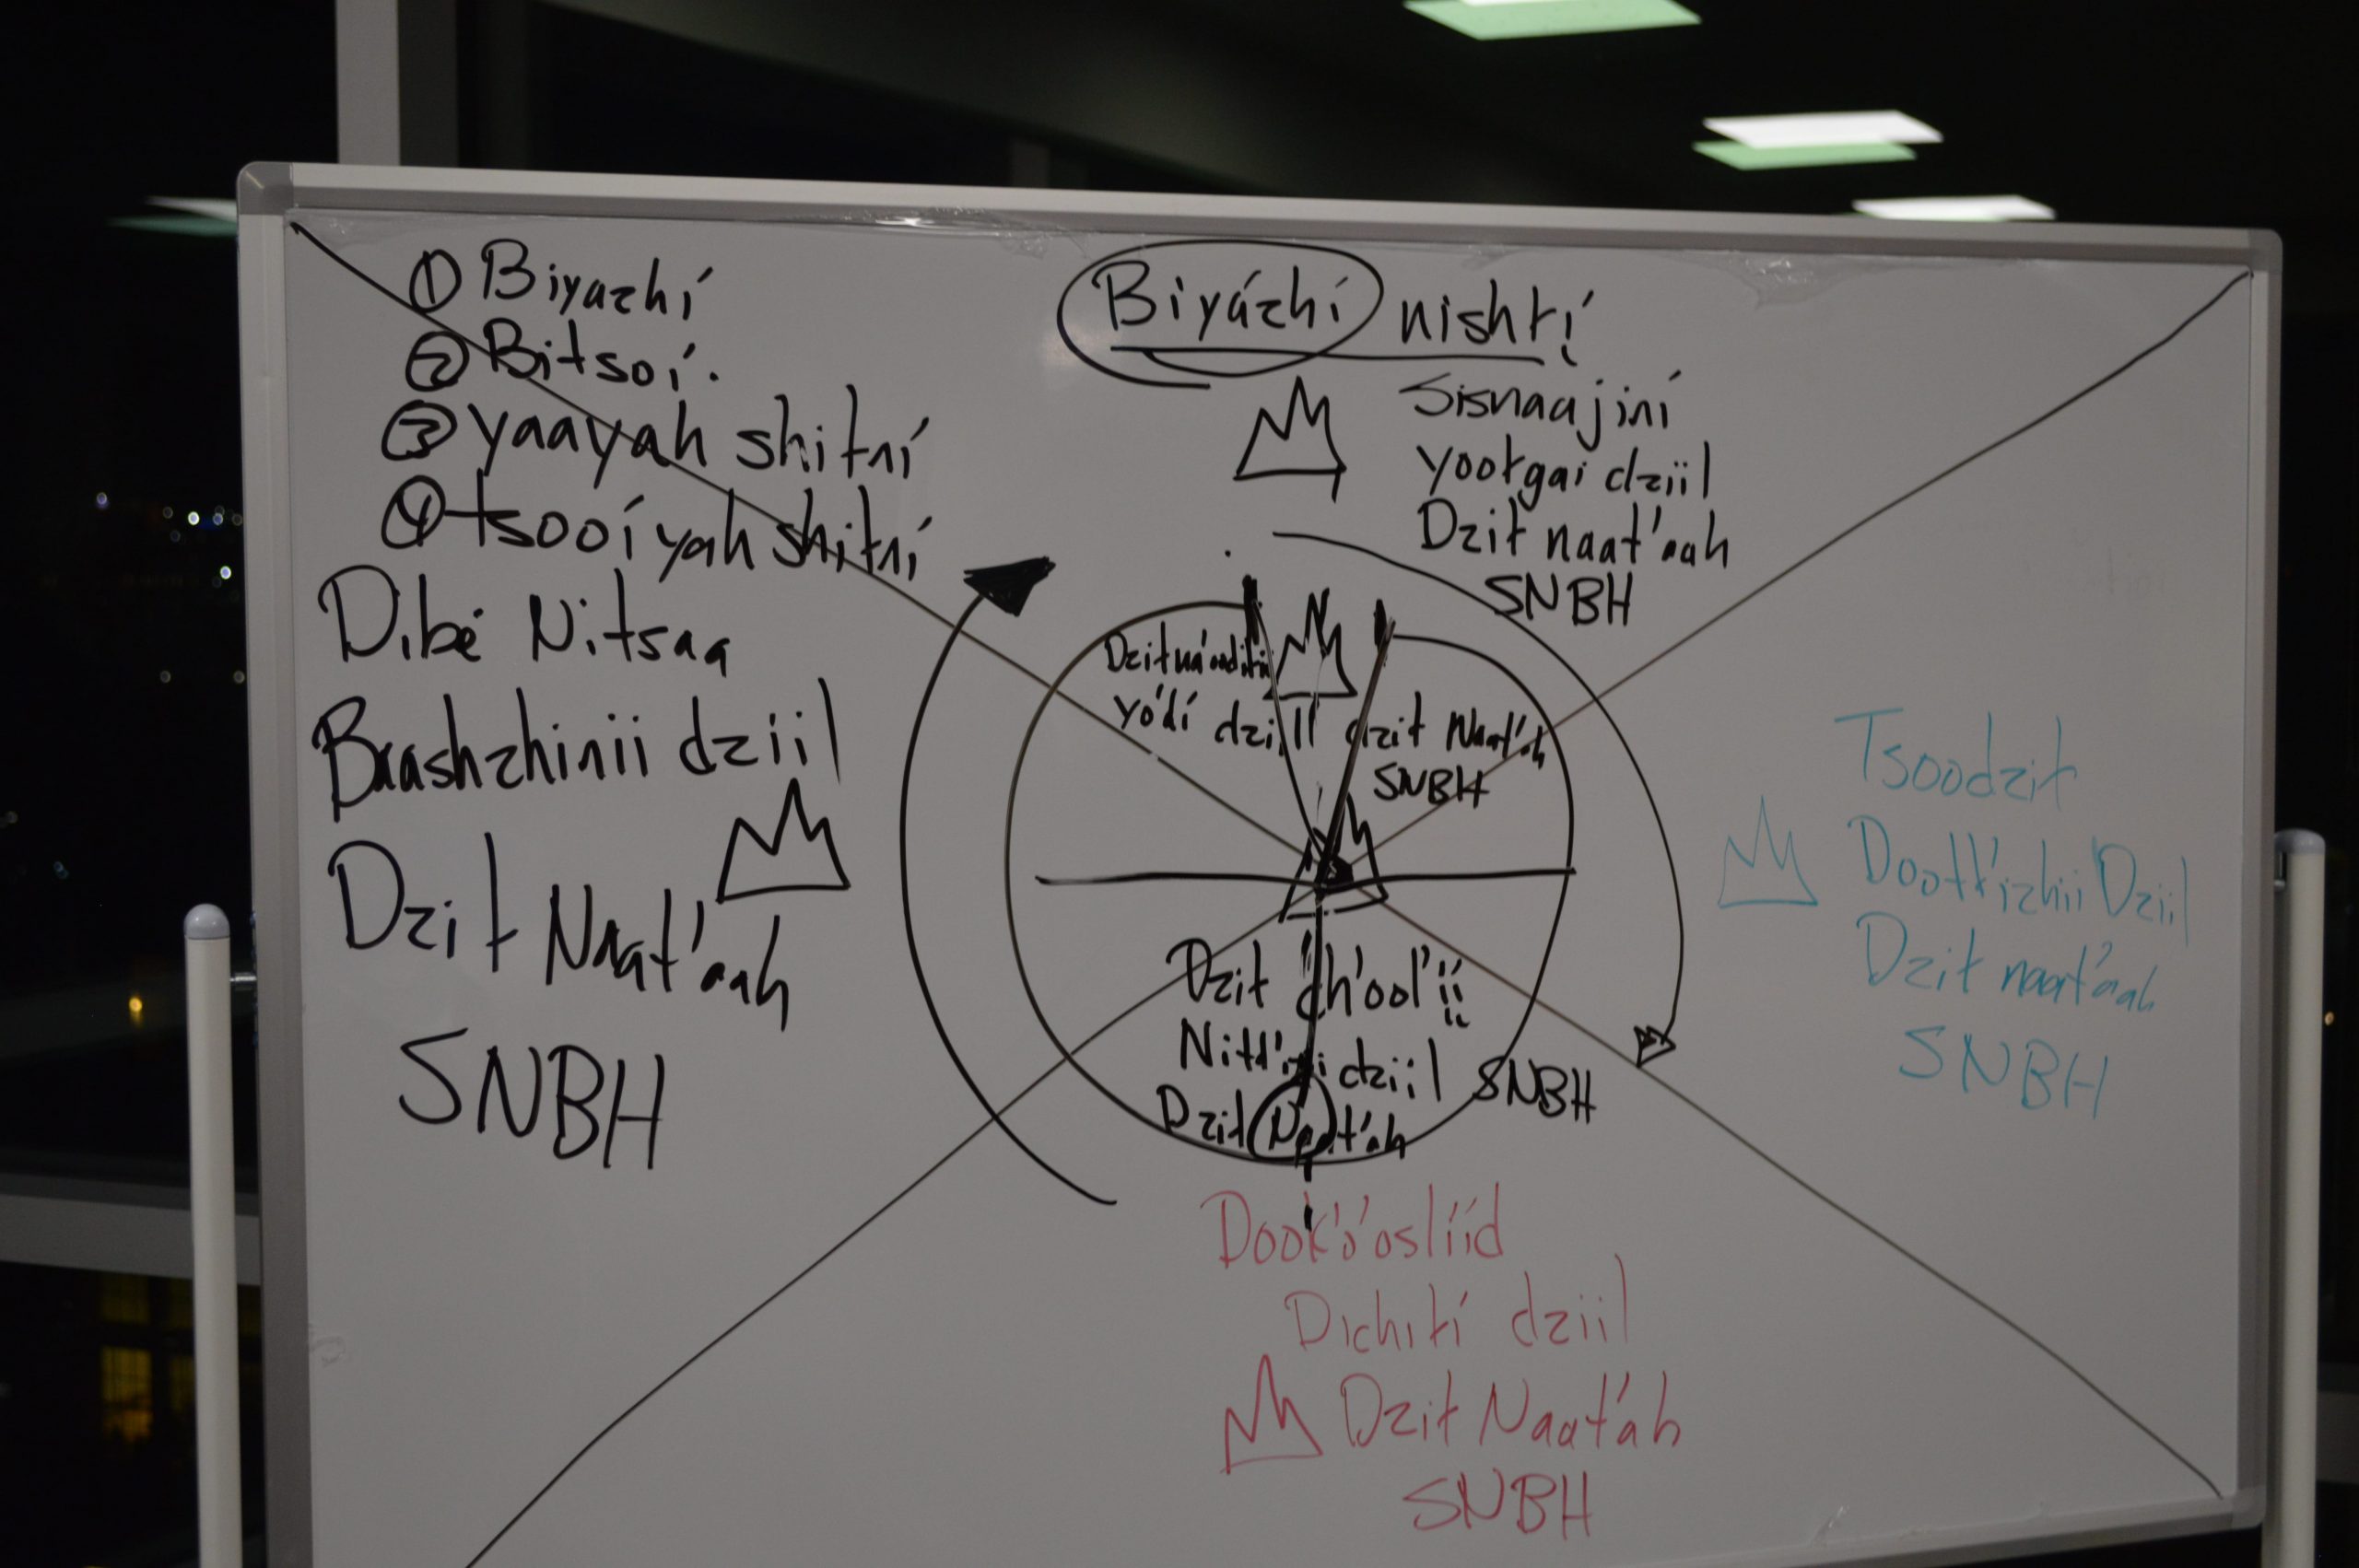 ① Biyazhí
② Bitsoí.
③ yaayah shiłní
④ tsooí yah shiłní
Dibé Nitsaa
Baashzhinii dziil
Dził Naat'aah
SNBH
Biyázhí nishłį́
Sisnaajiní
Yoołgai dziil
Dził naat'aah
SNBH
Dził ná'oodiłii
yódí dziil dził Naat'ah
SNBH
Dził ch'ool'į́į́
dziil SNBH
Dził Naat'ah
Tsoodził
Dootł'izhii Dziil
Dził naat'aah
SNBH
Dook'o'oslííd
Dichiłí dziil
Dził Naat'ah
SNBH